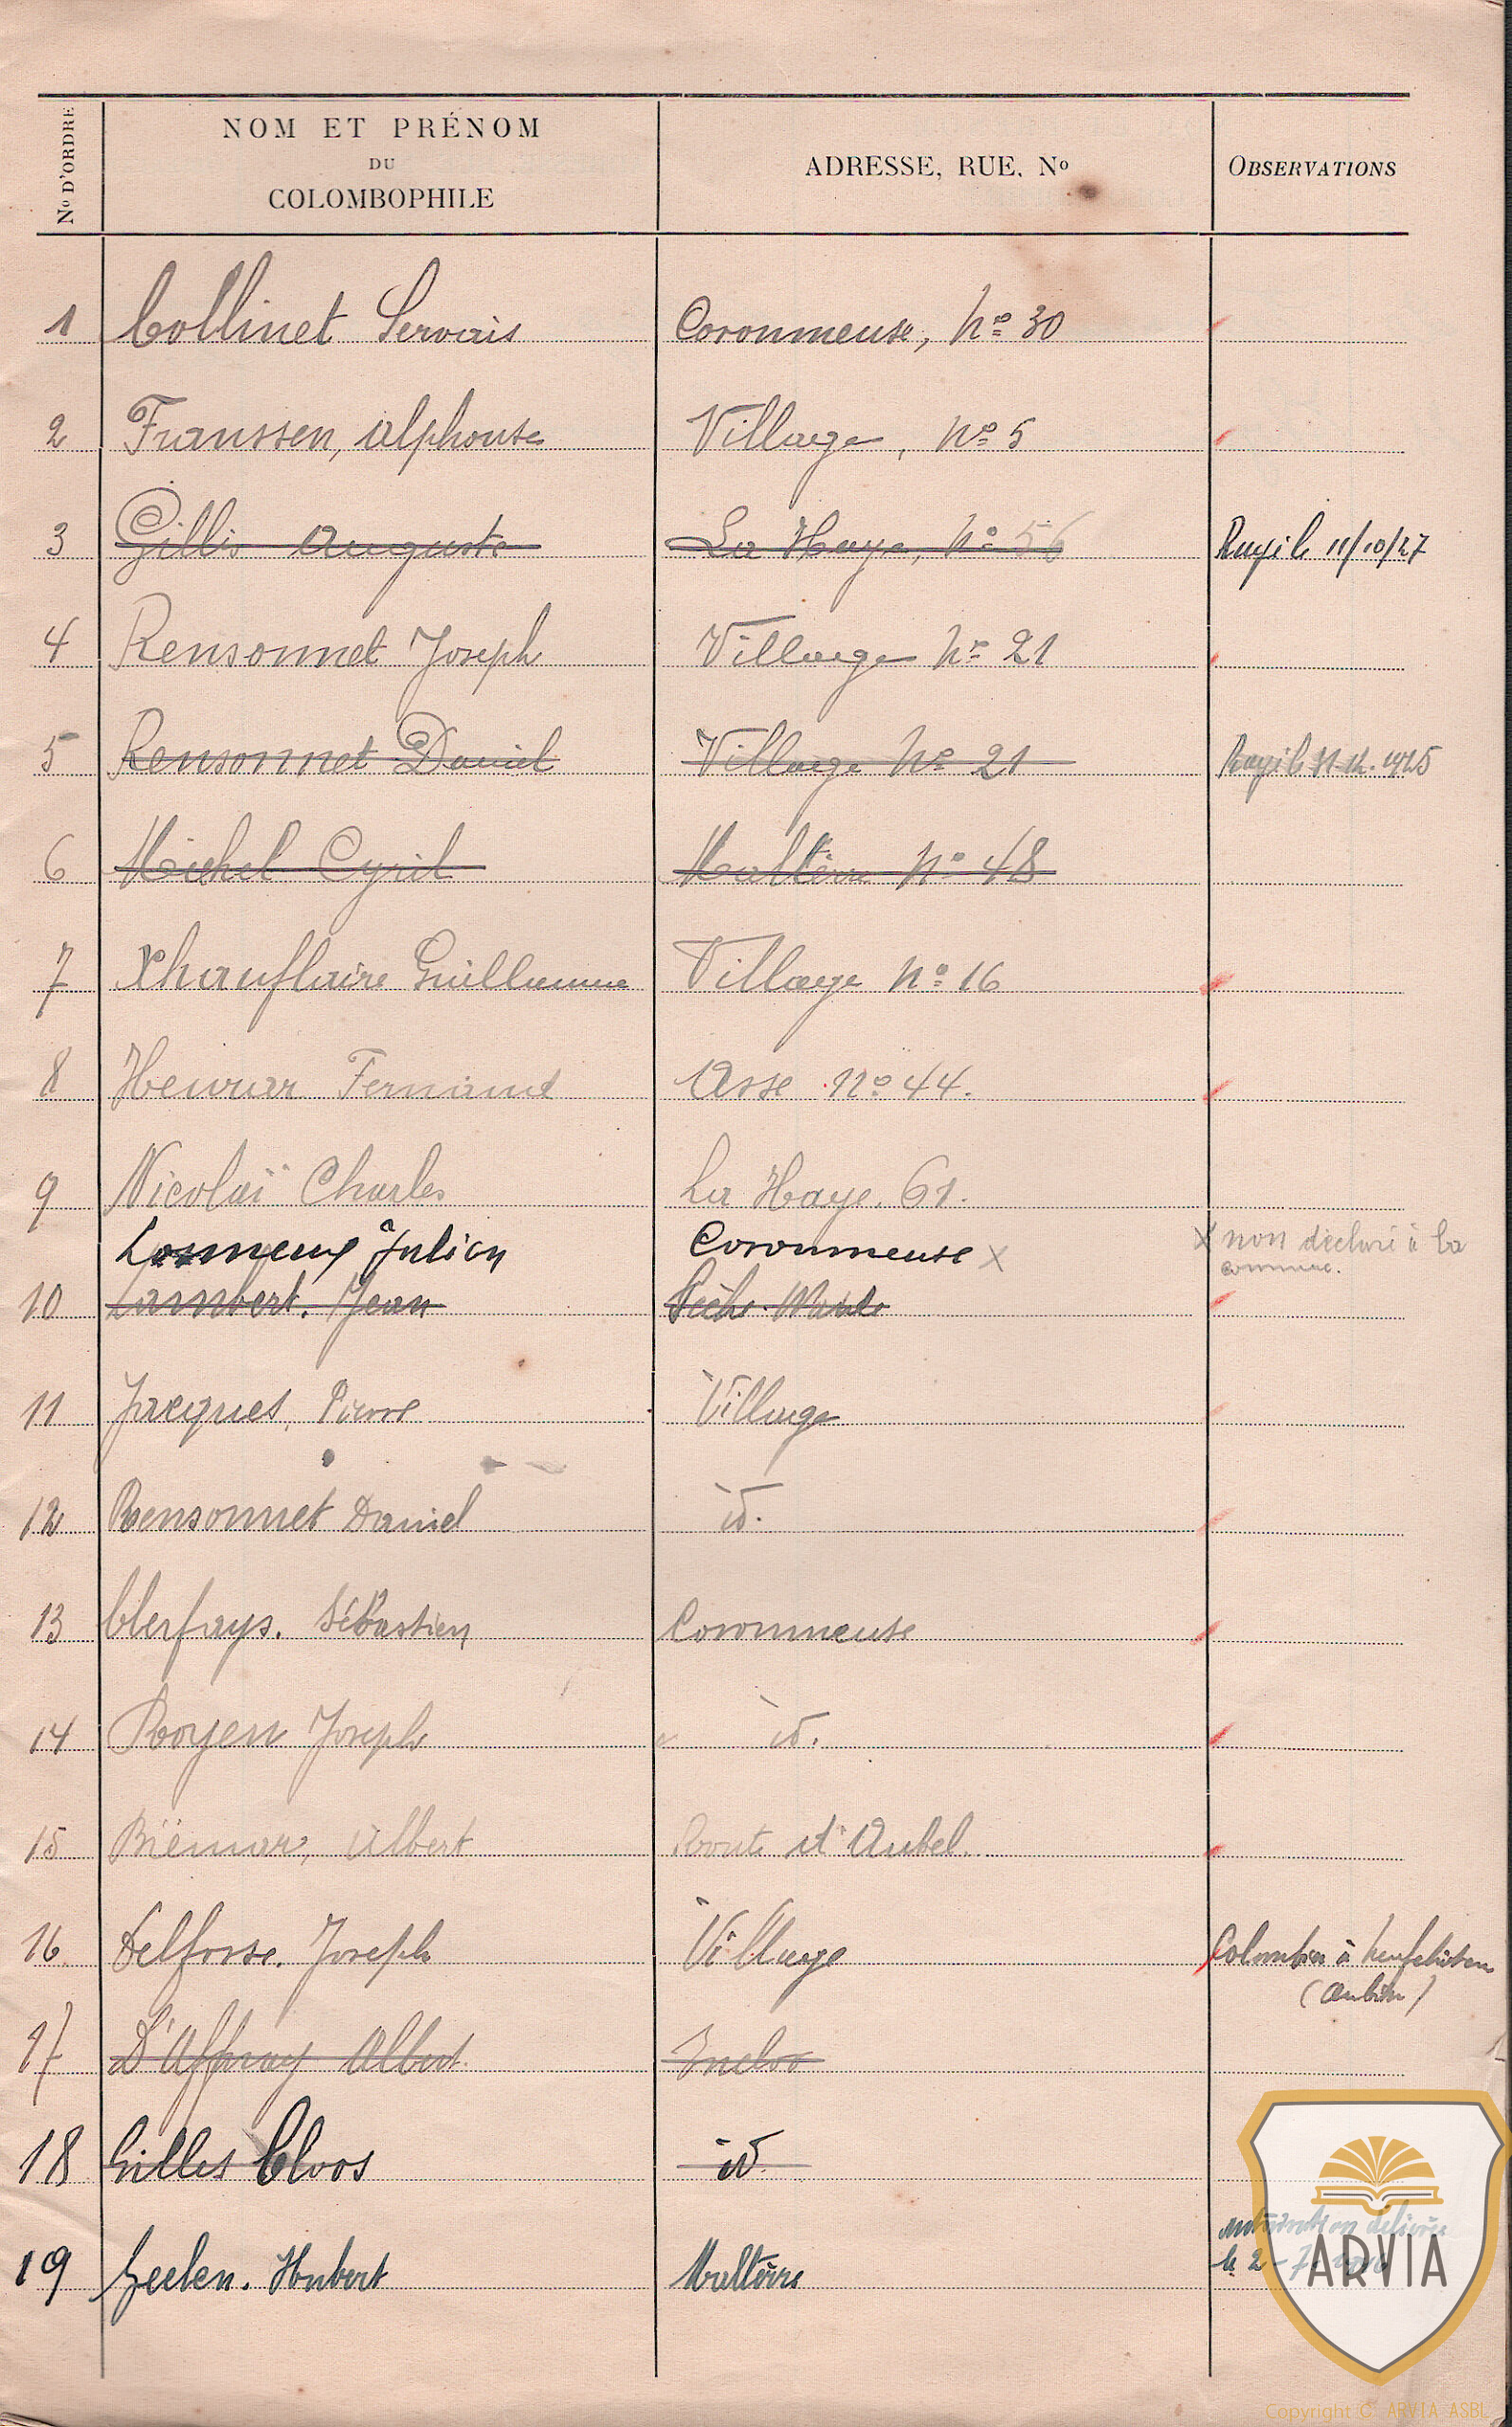 N° D'ORDRE
NOM ET PRÉNOM
DU
COLOMBOPHILE
ADRESSE, RUE, N°
OBSERVATIONS
1 Collinet Servais Coronmeuse, N° 30
2 Franssen, Alphonse Village, N° 5
3 Gillis Auguste La Haye, N° 56 Rayé le 11/10/27
4 Rensonnet Joseph Village N° 21
5 Rensonnet Daniel Village N° 21 Rayé le
6 Michel Cyril N° 48
7 Xhauflaire Guillaume Village N° 16
8 Fernand Asse N° 44.
9 Nicolaï Charles La Haye. 61.
Julien Coronmeuse x x non déclaré à la
commune.
10 Lambert. Jean
11 Jacques, Pierre Village
12 Rensonnet Daniel id.
13 Clerfays. Sébastien Coronmeuse
14 Royen Joseph id.
15 Biémar, Albert Route d'Aubel.
16 Delfosse. Joseph Village Colombier à Neufchâteau
17 D'Affnay Albert. Enclos
18 Gilles Cloos id.
19 Geelen. Hubert autorisation délivrée
le 2-7-
ARVIA
Copyright © ARVIA ASBL